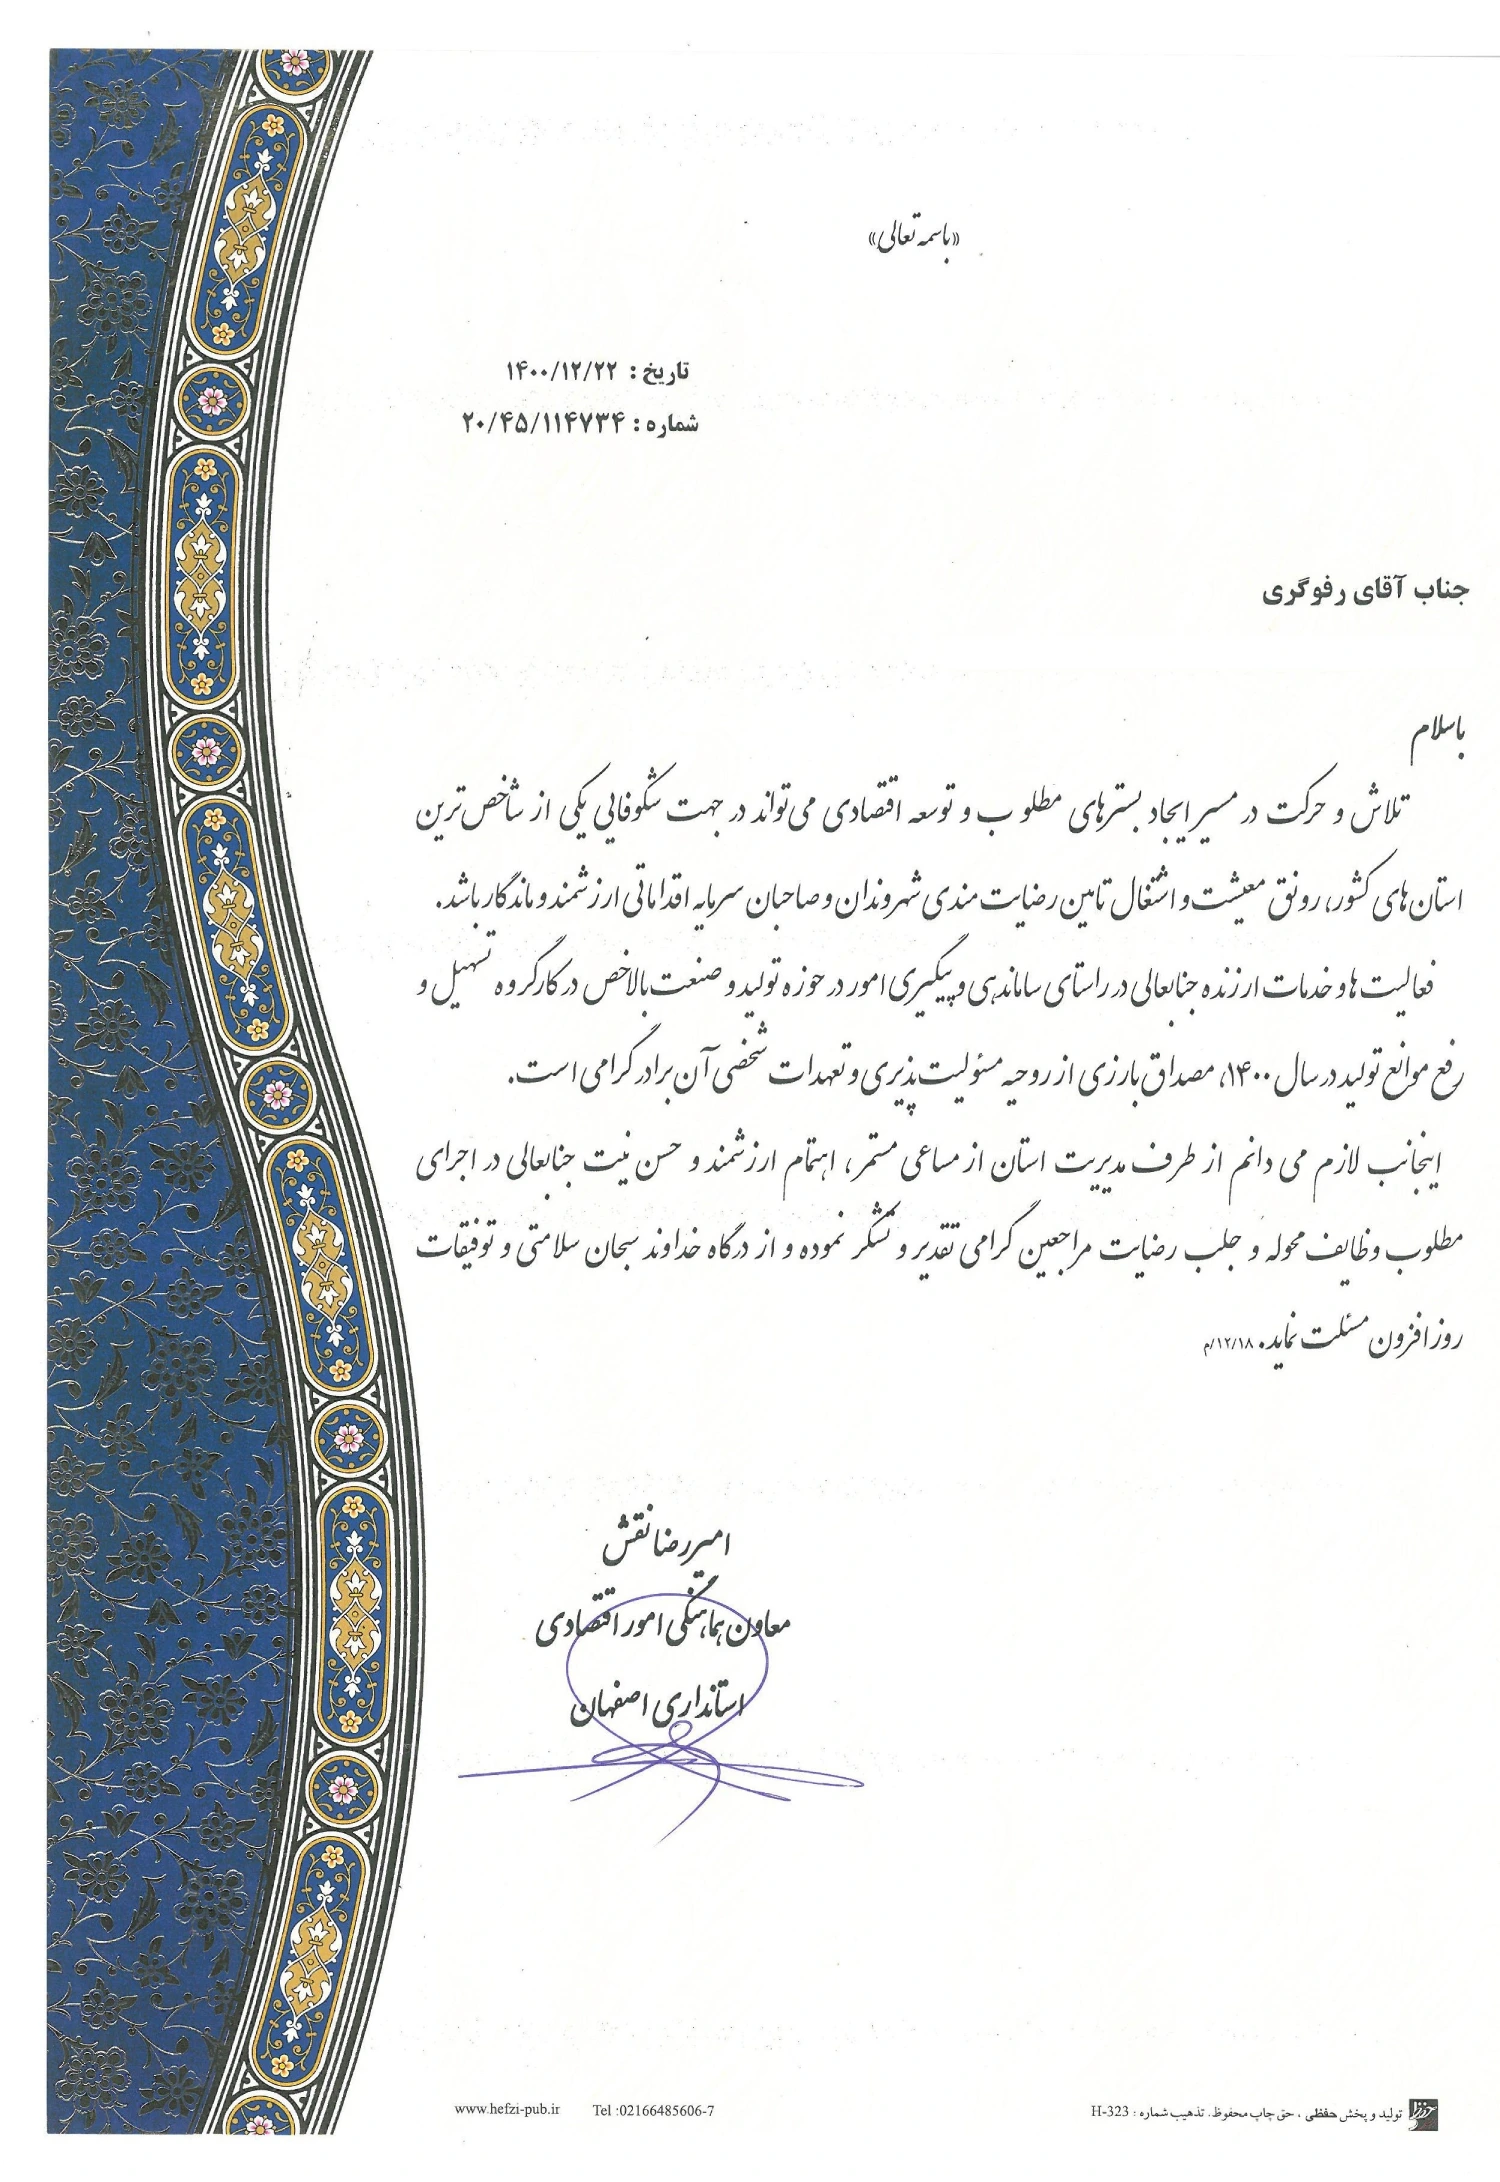 «باسمه تعالی»
تاریخ : ۱۴۰۰/۱۲/۲۲
شماره : ۲۰/۴۵/۱۱۴۷۳۴
جناب آقای رفوگری
باسلام
تلاش و حرکت در مسیر ایجاد بسترهای مطلوب و توسعه اقتصادی می‌تواند در جهت شکوفایی یکی از شاخص‌ترین
استان‌های کشور، رونق معیشت و اشتغال تامین رضایت مندی شهروندان و صاحبان سرمایه اقداماتی ارزشمند و ماندگار باشد.
فعالیت ها و خدمات ارزنده جنابعالی در راستای ساماندهی و پیگیری امور در حوزه تولید و صنعت بالاخص در کارگروه تسهیل و
رفع موانع تولید در سال ۱۴۰۰، مصداق بارزی از روحیه مسئولیت پذیری و تعهدات شخصی آن برادر گرامی است.
اینجانب لازم می دانم از طرف مدیریت استان از مساعی مستمر، اهتمام ارزشمند و حسن نیت جنابعالی در اجرای
مطلوب وظایف محوله و جلب رضایت مراجعین گرامی تقدیر و تشکر نموده و از درگاه خداوند سبحان سلامتی و توفیقات
روزافزون مسئلت نماید. ۱۲/۱۸/م
امیررضا نقش
معاون هماهنگی امور اقتصادی
استانداری اصفهان
تولید و پخش حفظی ، حق چاپ محفوظ. تذهیب شماره : H-323
Tel :02166485606-7
www.hefzi-pub.ir